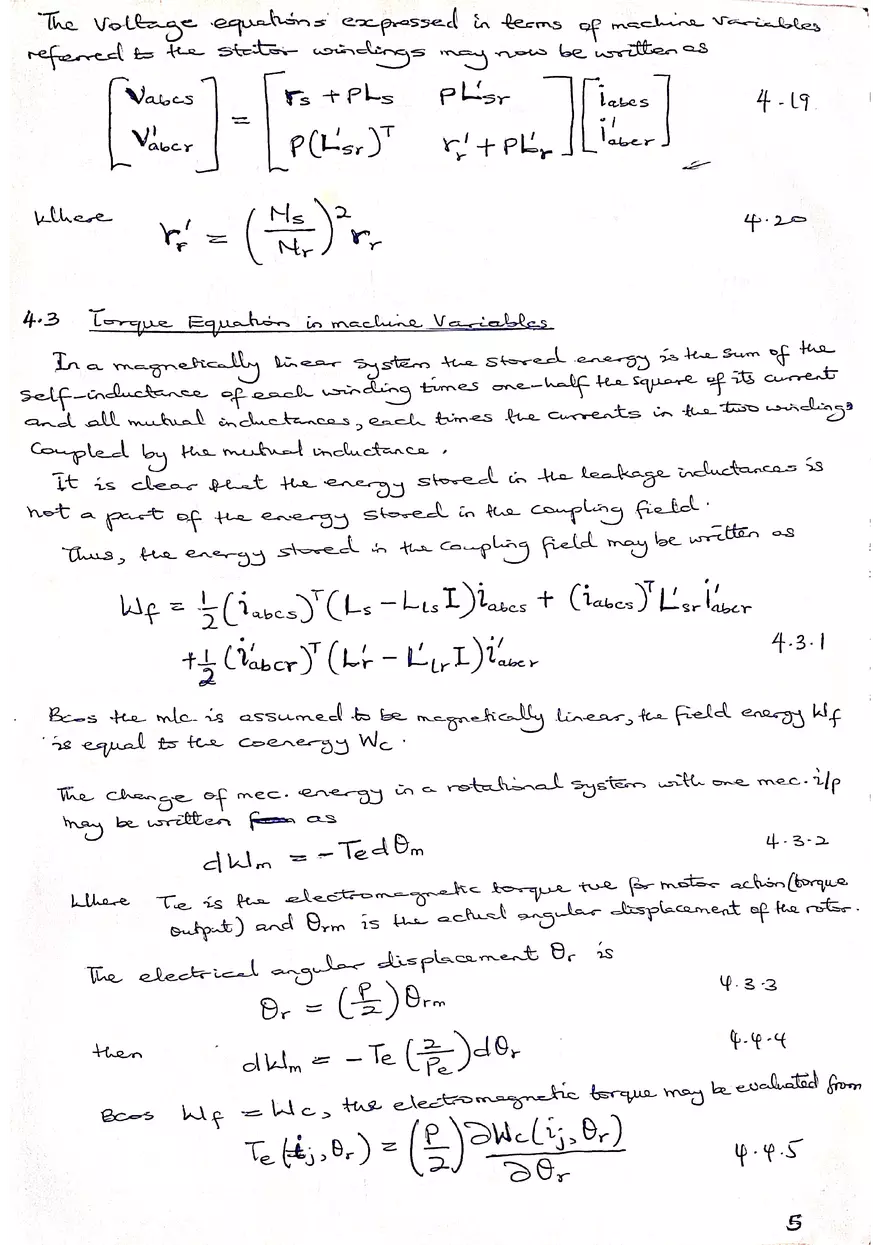 The Voltage equations expressed in terms of machine variables
referred to the stator windings may now be written as
[Vabcs V'abcr] = [rs + pLs pL'sr p(L'sr)^T r'r + pL'r] [iabcs i'abcr] 4-19
Where r'r = (Ns/Nr)^2 rr 4.20
4.3 Torque Equation in machine Variables
In a magnetically linear system the stored energy is the sum of the
self-inductance of each winding times one-half the square of its current
and all mutual inductances, each times the currents in the two windings
coupled by the mutual inductance.
It is clear that the energy stored in the leakage inductances is
not a part of the energy stored in the coupling field.
Thus, the energy stored in the coupling field may be written as
Wf = 1/2 (iabcs)^T (Ls - LlsI) iabcs + (iabcs)^T L'sr i'abcr
+ 1/2 (i'abcr)^T (L'r - L'lrI) i'abcr 4.3.1
Bcos the m/c. is assumed to be magnetically linear, the field energy Wf
is equal to the coenergy Wc.
The change of mec. energy in a rotational system with one mec. i/p
may be written as
dWm = - Te dθm 4.3.2
Where Te is the electromagnetic torque +ve for motor action (torque
output) and θrm is the actual angular displacement of the rotor.
The electrical angular displacement θr is
θr = (P/2) θrm 4.3.3
then dWm = - Te (2/Pe) dθr 4.4.4
Bcos Wf = Wc, the electromagnetic torque may be evaluated from
Te (ij, θr) = (P/2) ∂Wc(ij, θr)/∂θr 4.4.5
5